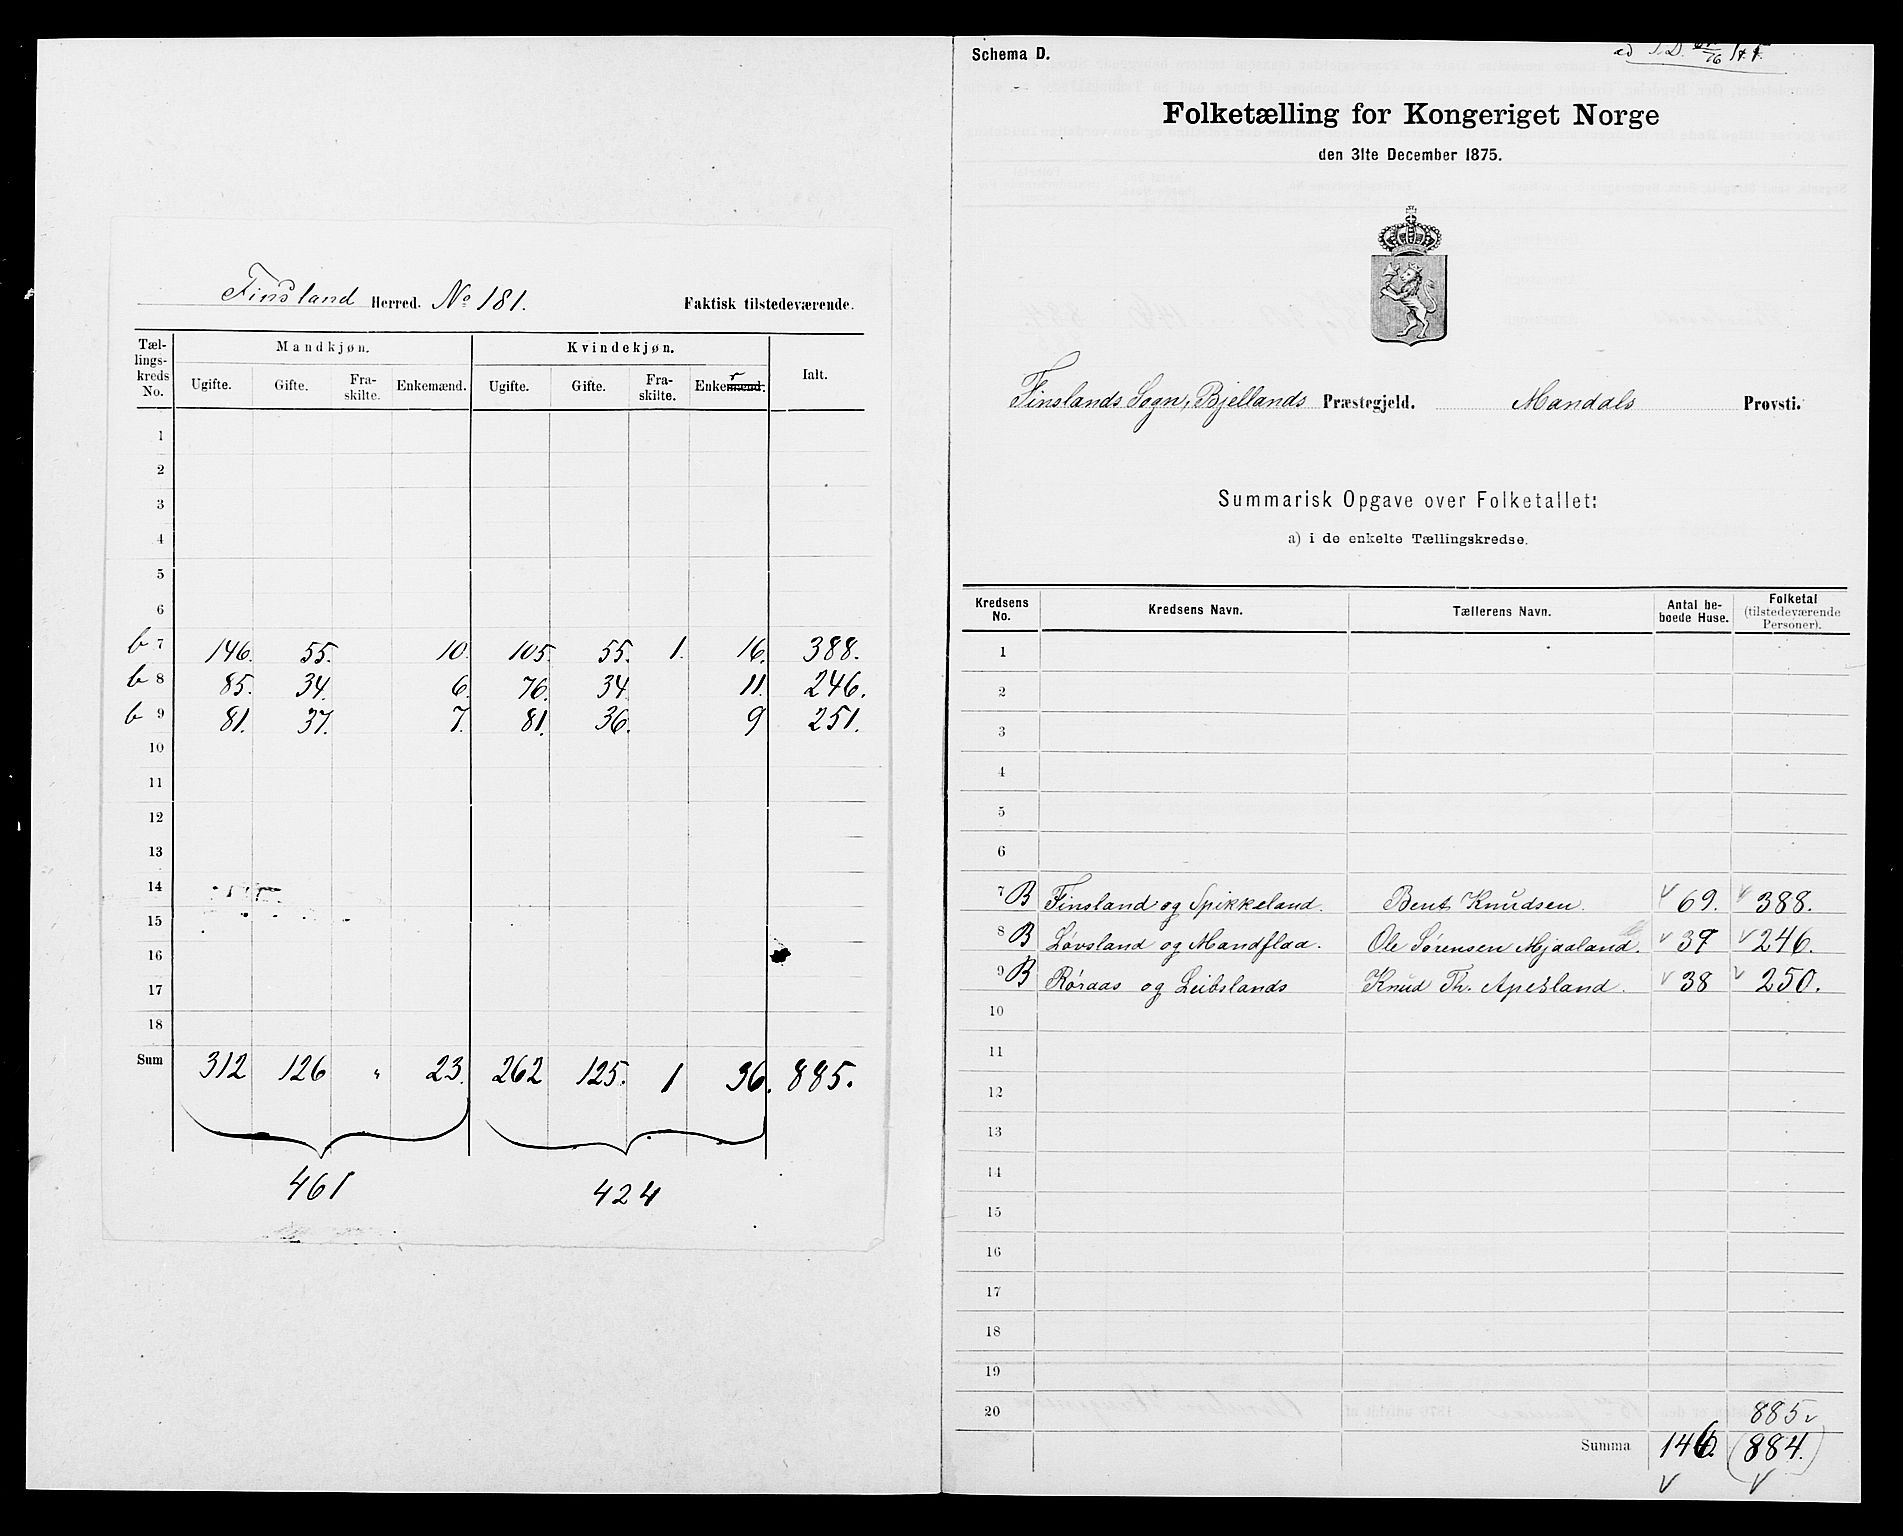 Finsland Herred. No 181. Faktisk tilstedeværende.
Tællingskreds No. Mandkjøn. Kvindekjøn. Ialt.
Ugifte. Gifte. Fraskilte. Enkemænd. Ugifte. Gifte. Fraskilte. Enker
1
2
3
4
5
6
b 7 146. 55. 10. 105. 55. 1. 16. 388.
b 8 85. 34. 6. 76. 34 11. 246.
b 9 81. 37. 7. 81. 36. 9 251.
10
11
12
13
14
15
16
17
18
Sum 312 126 " 23. 262 125. 1 36. 885.
461 424
Schema D.
Folketælling for Kongeriget Norge
den 31te December 1875.
Finslands Sogn, Bjellands Præstegjeld. Mandals Provsti.
Summarisk Opgave over Folketallet:
a) i de enkelte Tællingskredse.
Kredsens No. Kredsens Navn. Tællerens Navn. Antal beboede Huse. Folketal (tilstedeværende Personer).
1
2
3
4
5
6
7 B Finsland og Spikkeland. Bent Knudsen. 69. 388.
8 B Løvsland og Mandflaa. Ole Sørensen Mjaaland. 39 246.
9 B Røraas og Leibslands Knud Th. Apesland. 38 250.
10
11
12
13
14
15
16
17
18
19
20 885
Summa 146. (884.)